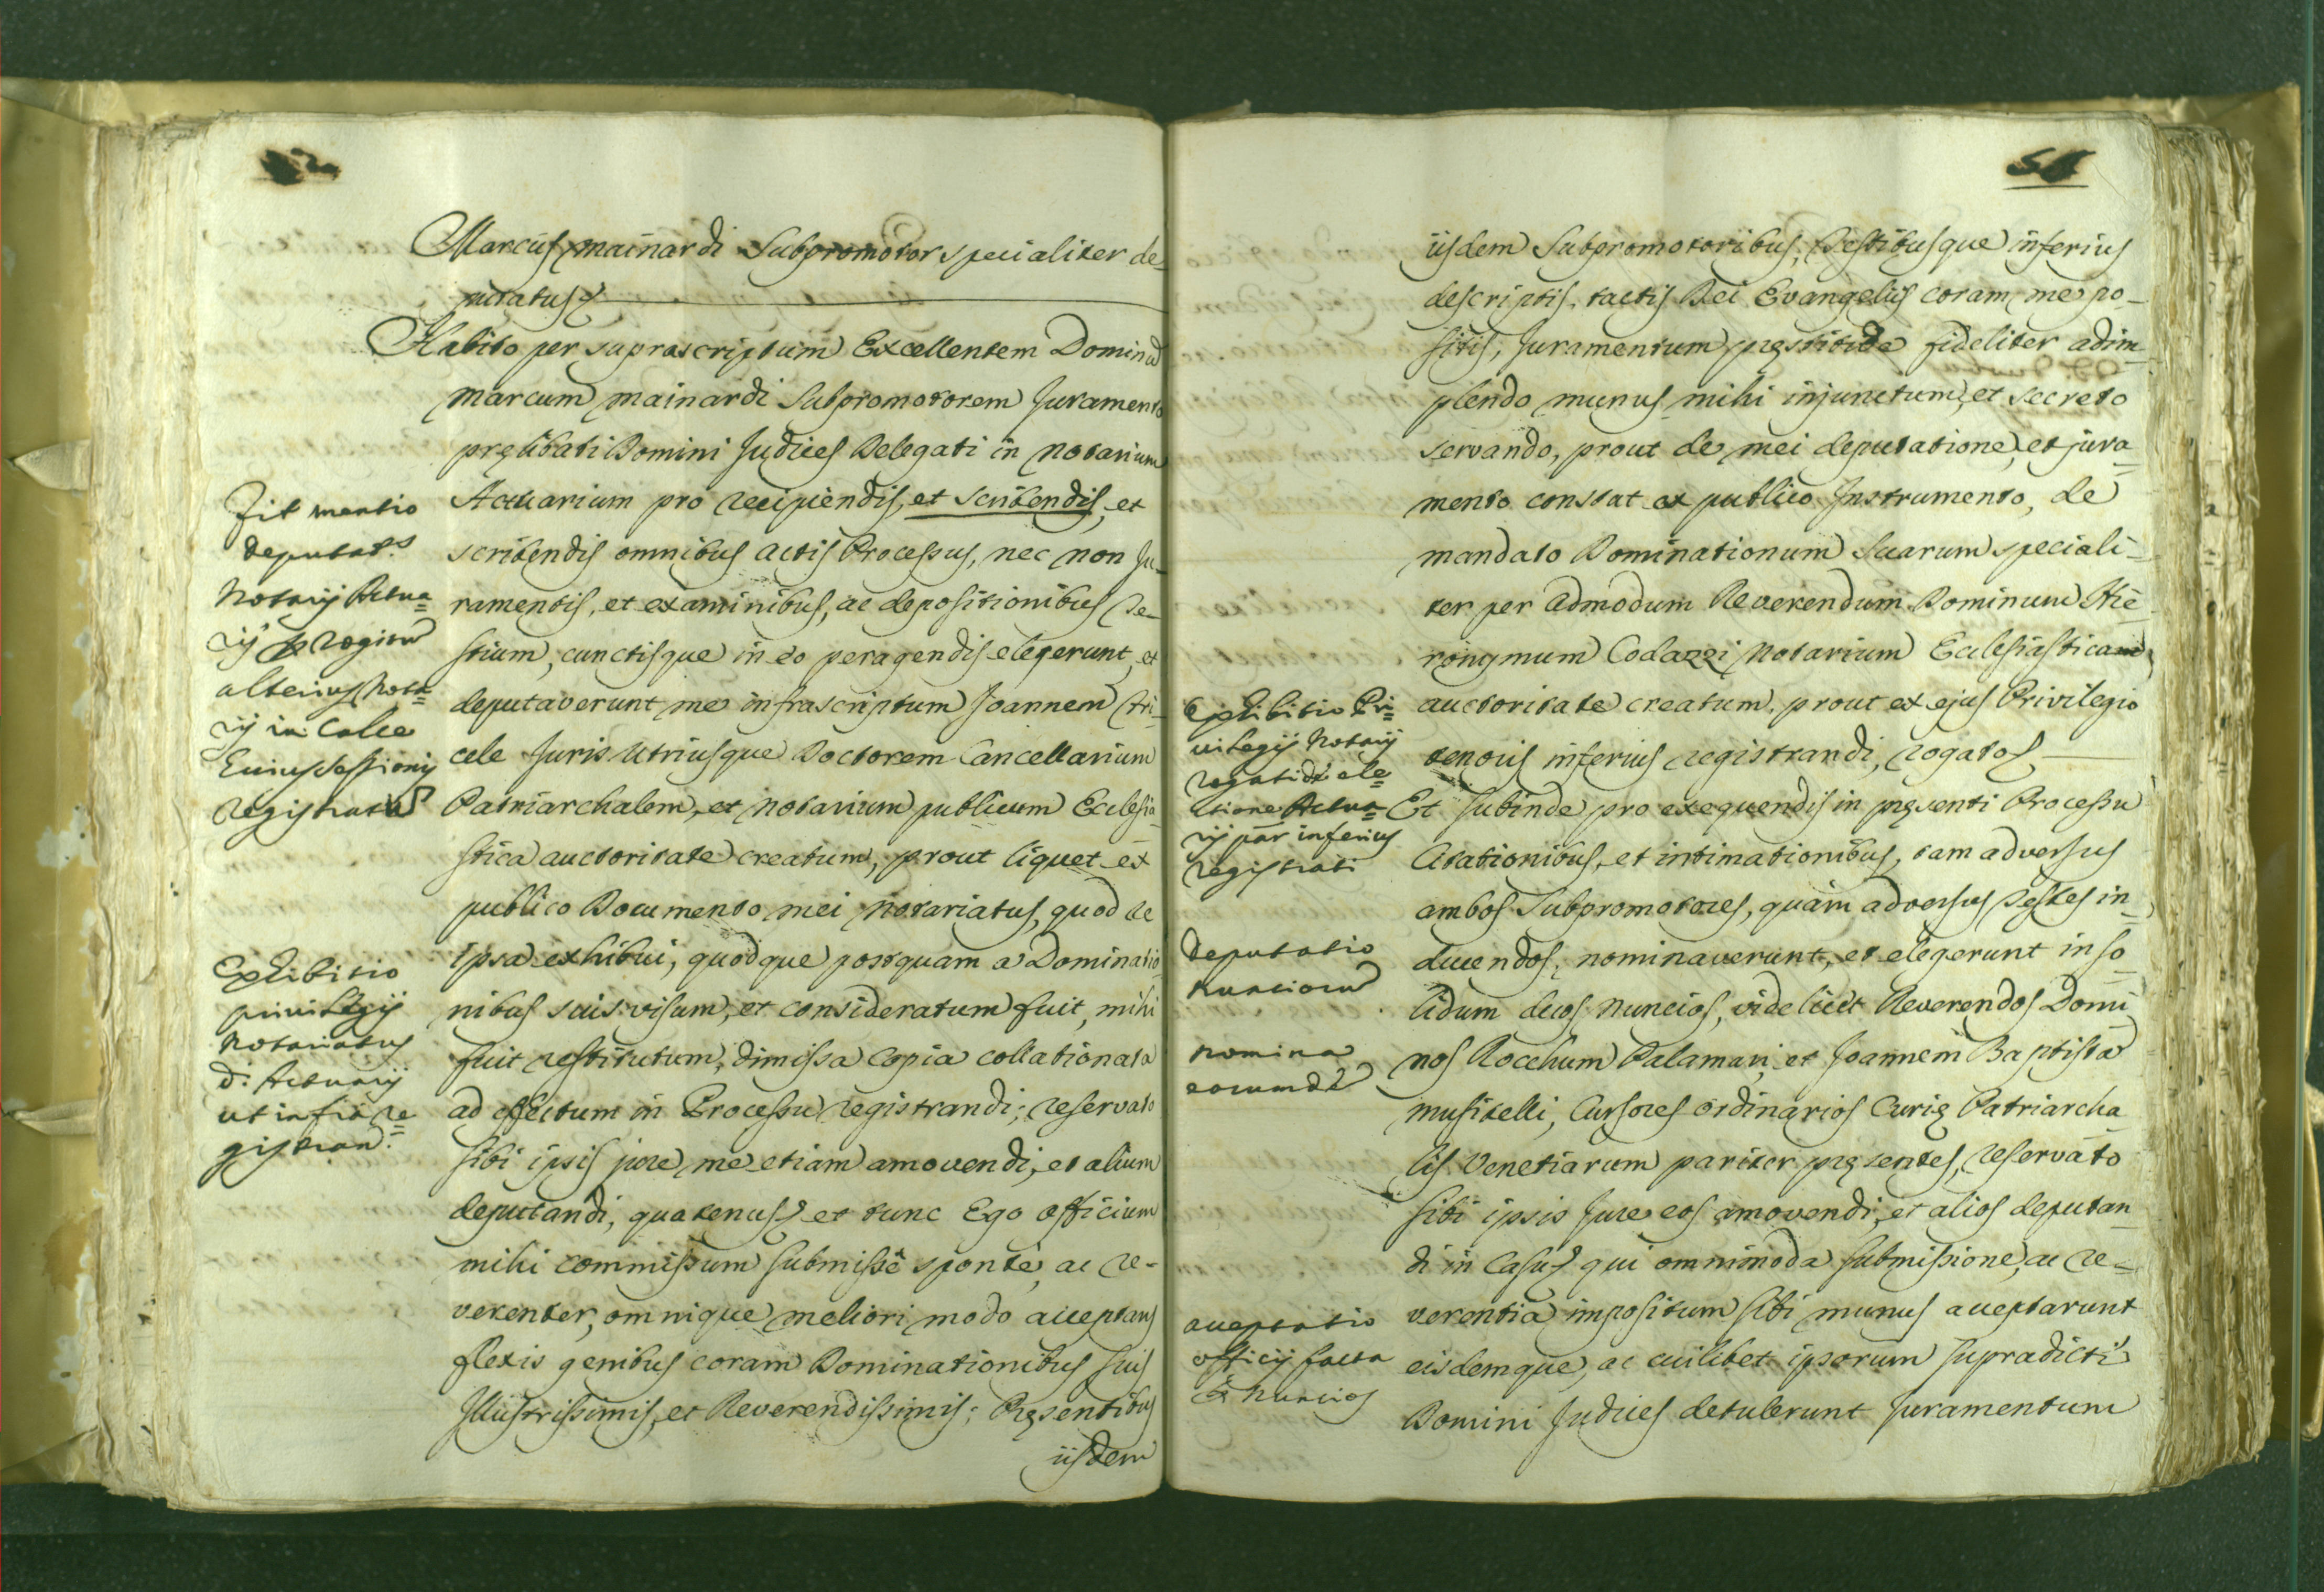 Marcus Mainardi Subpromotor specialiter de-
putatus
Habito per suprascriptum Excellentem Dominũ
Marcum Mainardi Subpromotorem Juramento
pręlibati Domini Judices Delegati in Notarium
Actuarium pro recipiendis, et scribendis, et
scribendis omnibus actis Processus, nec non Ju-
ramentis, et examinibus, ac depositionibus Te-
stium, cunctisque in eo peragendis elegerunt, et
deputaverunt me infrascriptum Joannem Tri-
cele Juris Utriusque Doctorem Cancellarium
Patriarchalem, et Notarium publicum Ecclesia-
stica auctoritate creatum, prout liquet ex
publico Documento mei Notariatus, quod re
ipsa exhibui, quodque postquam a Dominatio
nibus suis visum, et consideratum fuit, mihi
fuit restitutum, dimissa copia collationata
ad effectum in Processu registrandi; reservato
sibi ipsis jure me etiam amovendi, et alium
deputandi, quatenus et tunc Ego officium
mihi commissum submissè sponte, ac re-
verenter, omnique meliori modo acceptans
flexis genibus coram Dominationibus suis
Illustrissimis, et Reverendissimis; Pręsentibus
iisdem
Fit mentio
deputat.s
Notarij Actua=
rij
alterius Nota=
rij in Calce
huius sessionis
registratus
Exhibitio
privilegij
Notariatus
d: Actuarij
ut infra re=
gistran.
iisdem Subpromotoribus, Testibusque inferius
descriptis, tactis Dei Evangelijs coram me po-
sitis, Juramentum pręstiti de fideliter adim-
plendo munus mihi injunctum, et secreto
servando, prout de mei deputatione, et jura-
mento constat ex publico Instrumento, de
mandato Dominationum Suarum speciali-
ter per admodum Reverendum Dominum Hie-
ronymum Codazzi Notarium Ecclesiastica
auctoritate creatum, prout ex ejus Privilegio
tenoris inferius registrandi, rogatos
Et subinde pro exequendis in pręsenti Processu
Citationibus, et intimationibus, tam adversus
ambos Subpromotores, quàm adversus Testes in-
ducendos, nominaverunt, et elegerunt in so-
lidum duos Nuncios, videlicet Reverendos Domi
nos Rocchum Palamari, et Joannem Baptistã
Musitelli, Cursores ordinarios Curię Patriarcha-
lis Venetiarum pariter pręsentes, reservato
sibi ipsis Jure eos amovendi, et alios deputan-
di in Casu qui omnimoda submissione, ac re-
verentia impositum sibi munus acceptarunt
eisdemque, ac cuilibet ipsorum supradicti
Domini Judices detulerunt Juramentum
Exhibitio Pri=
vilegij Notarij
rogati de ele=
ctione Actua=
rij par inferius
registrati
Deputatio
Nunciorũ
Nomina
eorumdẽ
acceptatio
officij facta
Nuncios